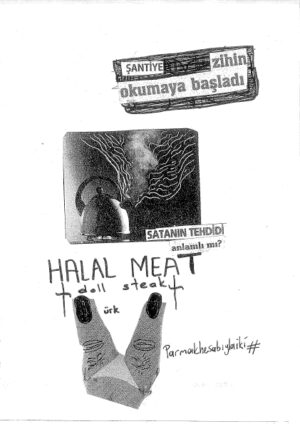 ŞANTİYE zihin
okumaya başladı
SATANIN TEHDİDİ
anlamlı mı?
HALAL MEAT
doll steak
ürk
Parmakhesabıylaiki#